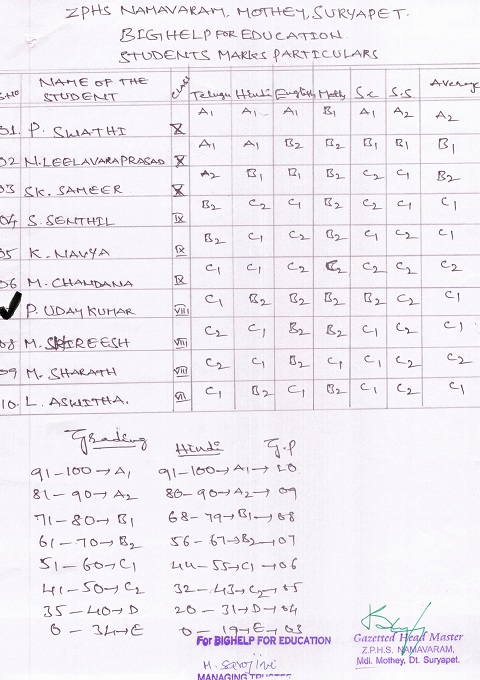 ZPHS NAMAVARAM, MOTHEY, SURYAPET.
BIGHELP FOR EDUCATION
STUDENTS MARKS PARTICULARS
S.No NAME OF THE STUDENT Class Telugu Hindi English Maths S.c S.S Average
01. P. SWATHI X A1 A1 A1 B1 A1 A2 A2
02 N. LEELAVARA PRASAD X A1 A1 B2 B2 B1 B1 B1
03 SK. SAMEER X A2 B1 B1 B2 C2 C1 B2
04 S. SENTHIL IX B2 C2 C1 B2 C2 C1 C1
05 K. NAVYA IX B2 C1 C2 B2 C1 C2 C1
06 M. CHANDANA IX C1 C1 C2 C2 C2 C2 C2
P. UDAY KUMAR VIII C1 B2 B2 B2 B2 C2 C1
08 M. SHIREESH VIII C2 C1 B2 B2 C1 C2 C1
09 M. SHARATH VIII C2 C2 B2 C1 C1 C2 C2
10. L. ASWITHA. VII C1 B2 C1 B2 C1 C2 C1
Grading Hindi G.P
91-100→A1 91-100→A1→10
81-90→A2 80-90→A2→09
71-80→B1 68-79→B1→08
61-70→B2 56-67→B2→07
51-60→C1 44-55→C1→06
41-50→C2 32-43→C2→05
35-40→D 20-31→D→04
0-34→E 0-19→E→03
For BIGHELP FOR EDUCATION
M. Sarojini
MANAGING TRUSTEE
Gazetted Head Master
Z.P.H.S. NAMAVARAM,
Mdl. Mothey, Dt. Suryapet.